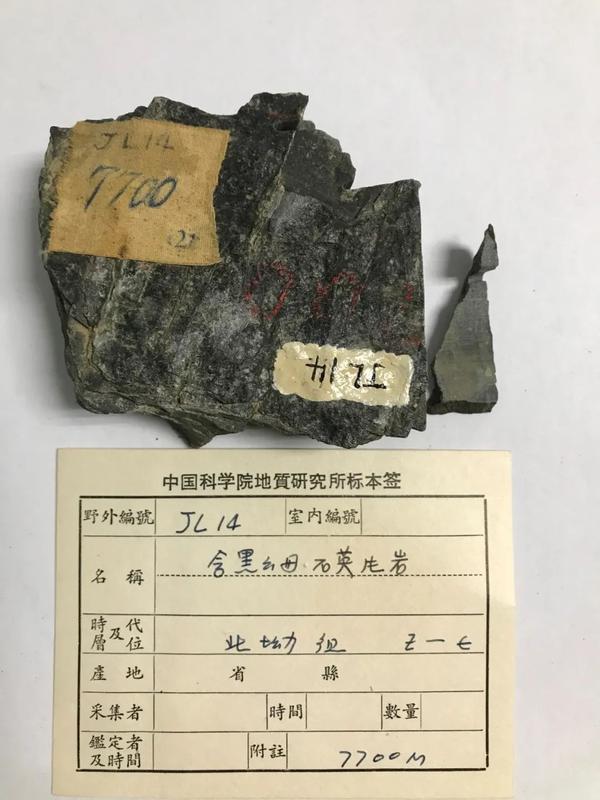 JL14
7700
(2)
JL14
中国科学院地質研究所标本签
野外編號 JL14 室内編號
名稱 含黑云母石英片岩
時代及層位 北坳组 Z-Є
產地 省 縣
采集者 時間 數量
鑑定者及時間 附註 7700M